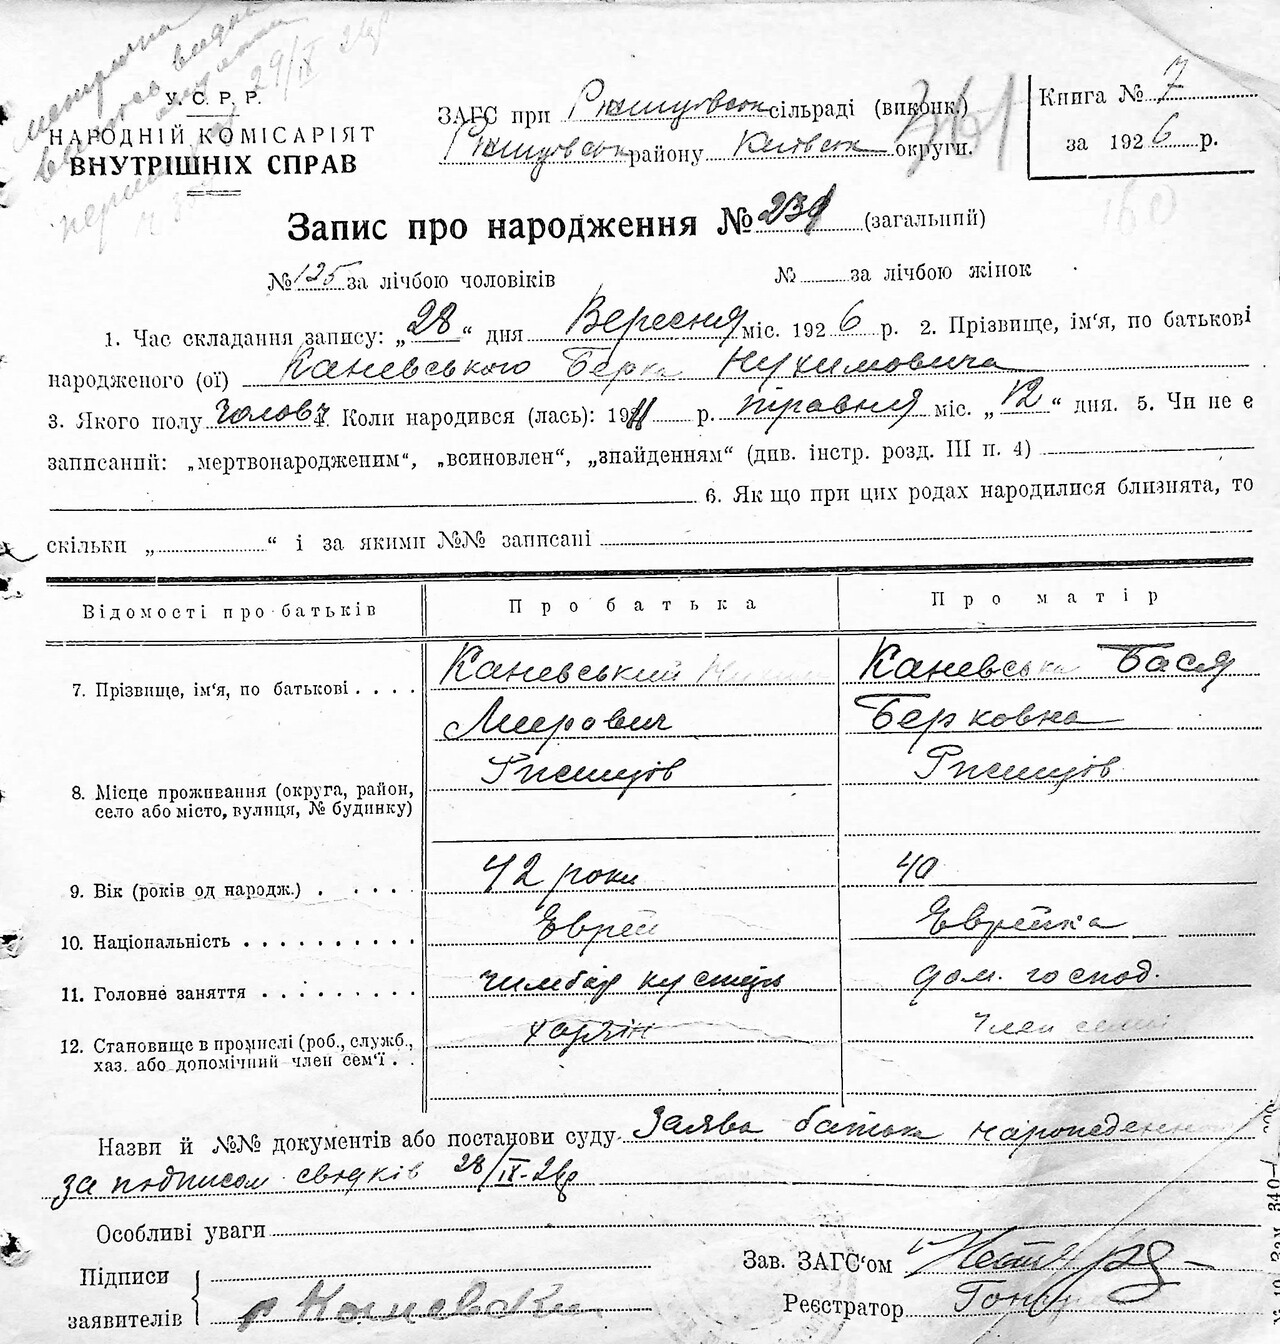 метрична
29/IX 26р
У. С. Р. Р.
НАРОДНІЙ КОМІСАРІЯТ
ВНУТРІШНІХ СПРАВ
ЗАГС при Ржищовськ сільраді (виконк.)
Ржищовськ району Київськ округи.
Книга № 7
за 1926 р.
160
Запис про народження № 231 (загальний)
№ 125 за лічбою чоловіків № за лічбою жінок
1. Час складання запису: „28“ дня Вересня міс. 1926 р. 2. Прізвище, ім'я, по батькові
народженого (ої) Каневського Берка Нухимовича
3. Якого полу чолов. 4. Коли народився (лась): 1911 р. травня міс. „12“ дня. 5. Чи не є
записаний: „мертвонародженим“, „всиновлен“, „знайденням“ (див. інстр. розд. III п. 4)
6. Як що при цих родах народилися близнята, то
скільки „ “ і за якими №№ записані
Відомості про батьків Про батька Про матір
7. Прізвище, ім'я, по батькові . . . . Каневський Каневська Бася
Меерович Берковна
8. Місце проживання (округа, район, село або місто, вулиця, № будинку) Ржищів Ржищів
9. Вік (років од народж.) . . . . . 42 роки 40
10. Національність . . . . . . . . . . Еврей Еврейка
11. Головне заняття . . . . . . . . . чимбар кустарь дом. господ.
12. Становище в промислі (роб., служб., хаз. або допомічний член сем'ї . . хазяїн член семї
Назви й №№ документів або постанови суду Заява батька народженого
за подписом свідків 28/IX-26р
Особливі уваги
Підписи
заявителів
Каневски
Зав. ЗАГС'ом
Реєстратор